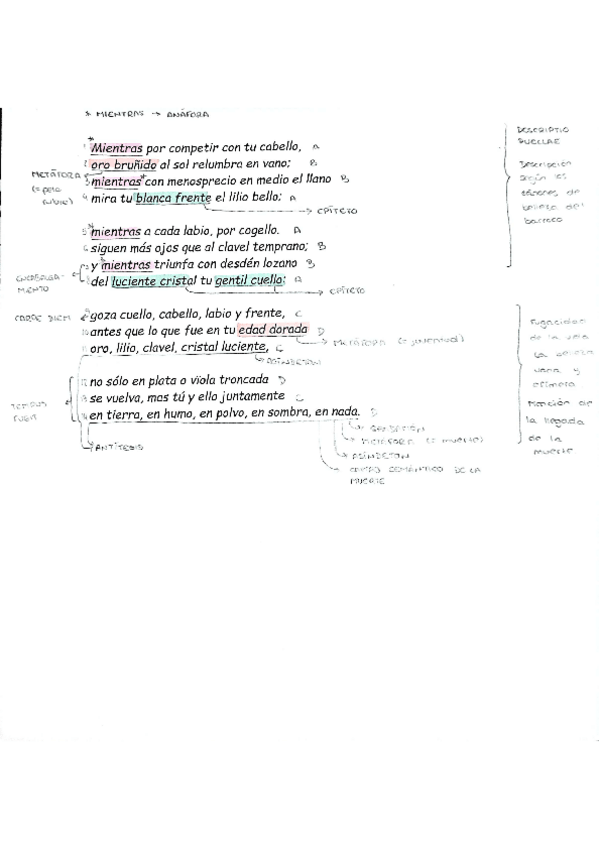 * MIENTRAS → ANÁFORA
Mientras por competir con tu cabello, A
oro bruñido al sol relumbra en vano; B
mientras* con menosprecio en medio el llano B
mira tu blanca frente el lilio bello; A
→ EPÍTETO
METÁFORA
(= pelo
rubio)
mientras a cada labio, por cogello. A
siguen más ojos que al clavel temprano; B
y mientras triunfa con desdén lozano B
del luciente cristal tu gentil cuello; A
→ EPÍTETO
ENCABALGA-
MIENTO
DESCRIPTIO
PUELLAE
Descripción
según los
cánones de
belleza del
barroco
CARPE DIEM
goza cuello, cabello, labio y frente, C
antes que lo que fue en tu edad dorada D
→ METÁFORA (= juventud)
oro, lilio, clavel, cristal luciente, C
→ ASÍNDETON
no sólo en plata o vïola troncada D
se vuelva, mas tú y ello juntamente C
en tierra, en humo, en polvo, en sombra, en nada. D
TEMPUS
FUGIT
ANTÍTESIS
→ GRADACIÓN
→ METÁFORA (= muerte)
→ ASÍNDETON
→ CAMPO SEMÁNTICO DE LA
MUERTE
Fugacidad
de la vida
La belleza
vana y
efímera
Mención de
la llegada
de la
muerte